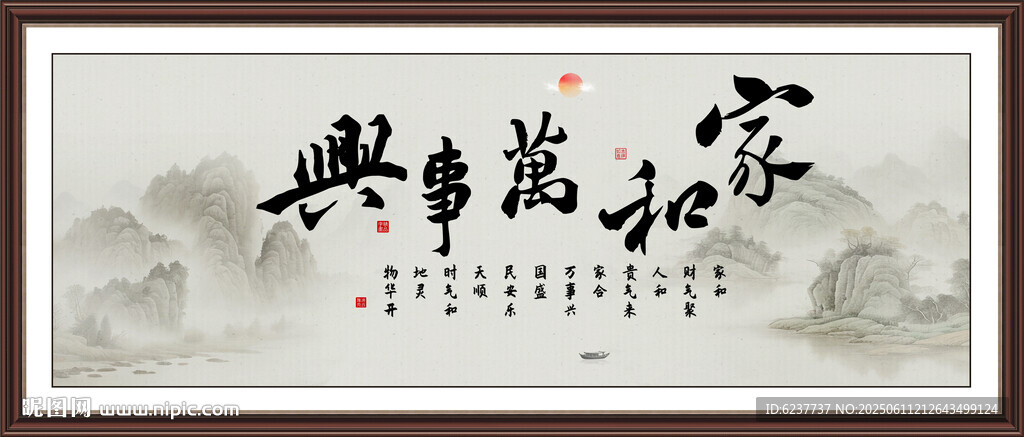 家和萬事興
家和
财气聚
人和
贵气来
家合
万事兴
国盛
民安乐
天顺
时气和
地灵
物华开
昵图网 www.nipic.com
ID:6237737 NO:20250611212643499124